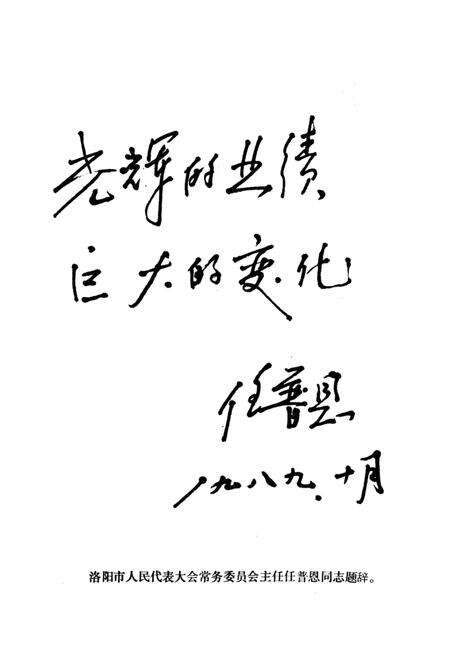 光辉的业绩
巨大的变化
任普恩
一九八九.十月
洛阳市人民代表大会常务委员会主任任普恩同志题辞。